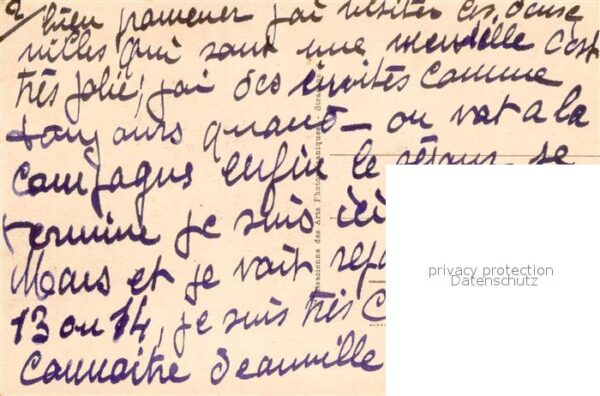 2/ bien promener j'ai visiter ces deux
villes qui sont une merveille c'est
très jolie, j'ai des invités comme
toujours quand on vat a la
campagne enfin le séjour se
termine je suis ici
Mars et je vait
13 ou 14, je suis très
Connaitre Jeanville
Alsacienne des Arts Photomécaniques - Strasbourg
privacy protection
Datenschutz